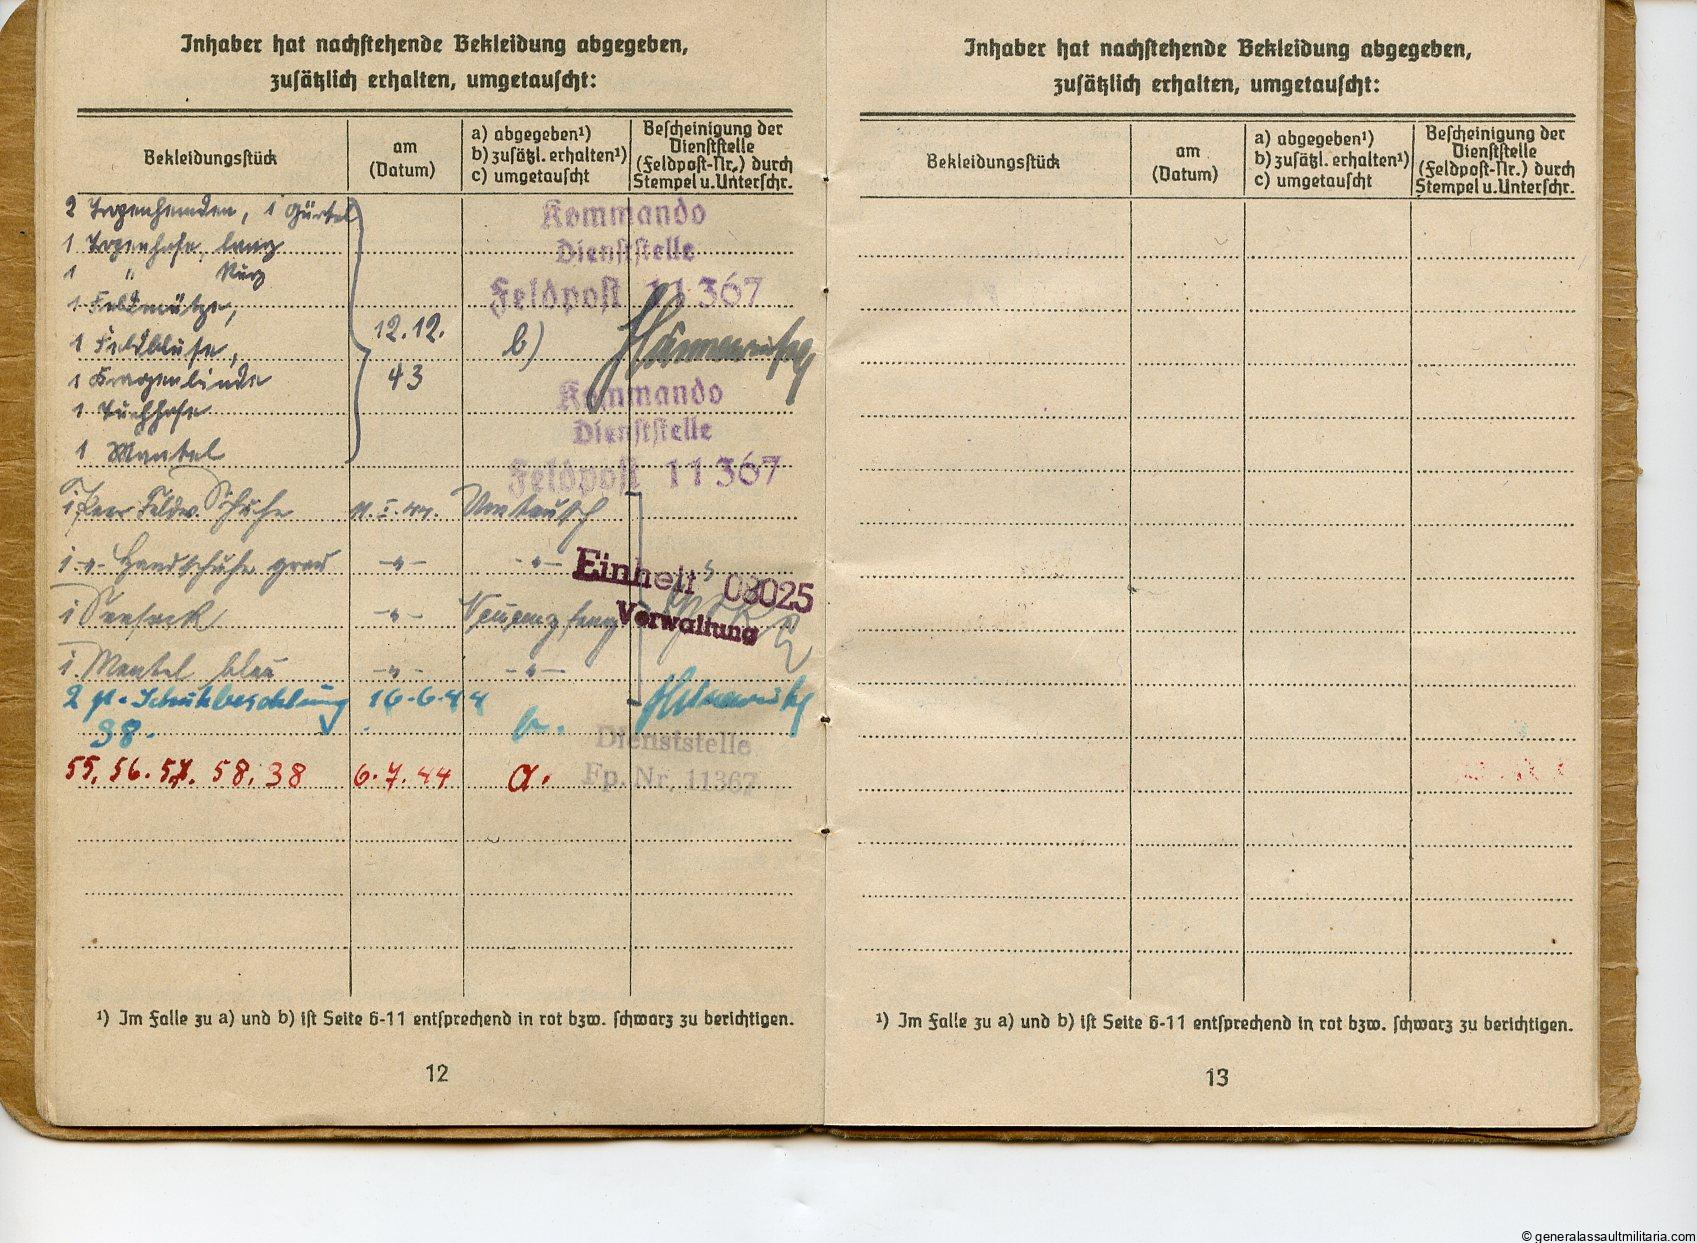 Inhaber hat nachstehende Bekleidung abgegeben,
zusätzlich erhalten, umgetauscht:
Bekleidungsstück
am
(Datum)
a) abgegeben¹)
b) zusätzl. erhalten¹)
c) umgetauscht
Bescheinigung der
Dienststelle
(Feldpost-Nr.) durch
Stempel u. Unterschr.
2 Tropenhemden, 1 Gürtel
1 Tropenhose, lang
1 " kurz
1 Feldmütze,
1 Feldbluse,
1 Kragenbinde
1 Tuchhose
1 Mantel
12.12.
43
b)
Kommando
Dienststelle
Feldpost 11367
Kommando
Dienststelle
Feldpost 11367
1 Paar Schuhe
Umtausch
1 -"- Handschuhe grau -"- -"-
1 Seesack -"- Neuempfang
1 Mantel blau -"- -"-
Einheit 08025
Verwaltung
2 Schuhbesohlung 16.6.44
38. b.
55, 56. 57. 58. 38 6.7.44 a.
Dienststelle
Fp. Nr. 11367
¹) Im Falle zu a) und b) ist Seite 6-11 entsprechend in rot bzw. schwarz zu berichtigen.
12
Inhaber hat nachstehende Bekleidung abgegeben,
zusätzlich erhalten, umgetauscht:
Bekleidungsstück
am
(Datum)
a) abgegeben¹)
b) zusätzl. erhalten¹)
c) umgetauscht
Bescheinigung der
Dienststelle
(Feldpost-Nr.) durch
Stempel u. Unterschr.
¹) Im Falle zu a) und b) ist Seite 6-11 entsprechend in rot bzw. schwarz zu berichtigen.
13
© generalassaultmilitaria.com